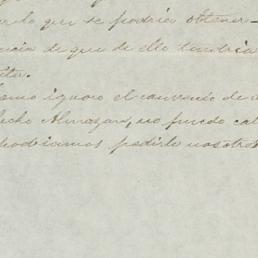 lo que se podria obtener-
cia de que de ello tendria
ta.
omo ignoro el convenio de
echo Almazan, no puedo cal
podriamos pedirle nosotro